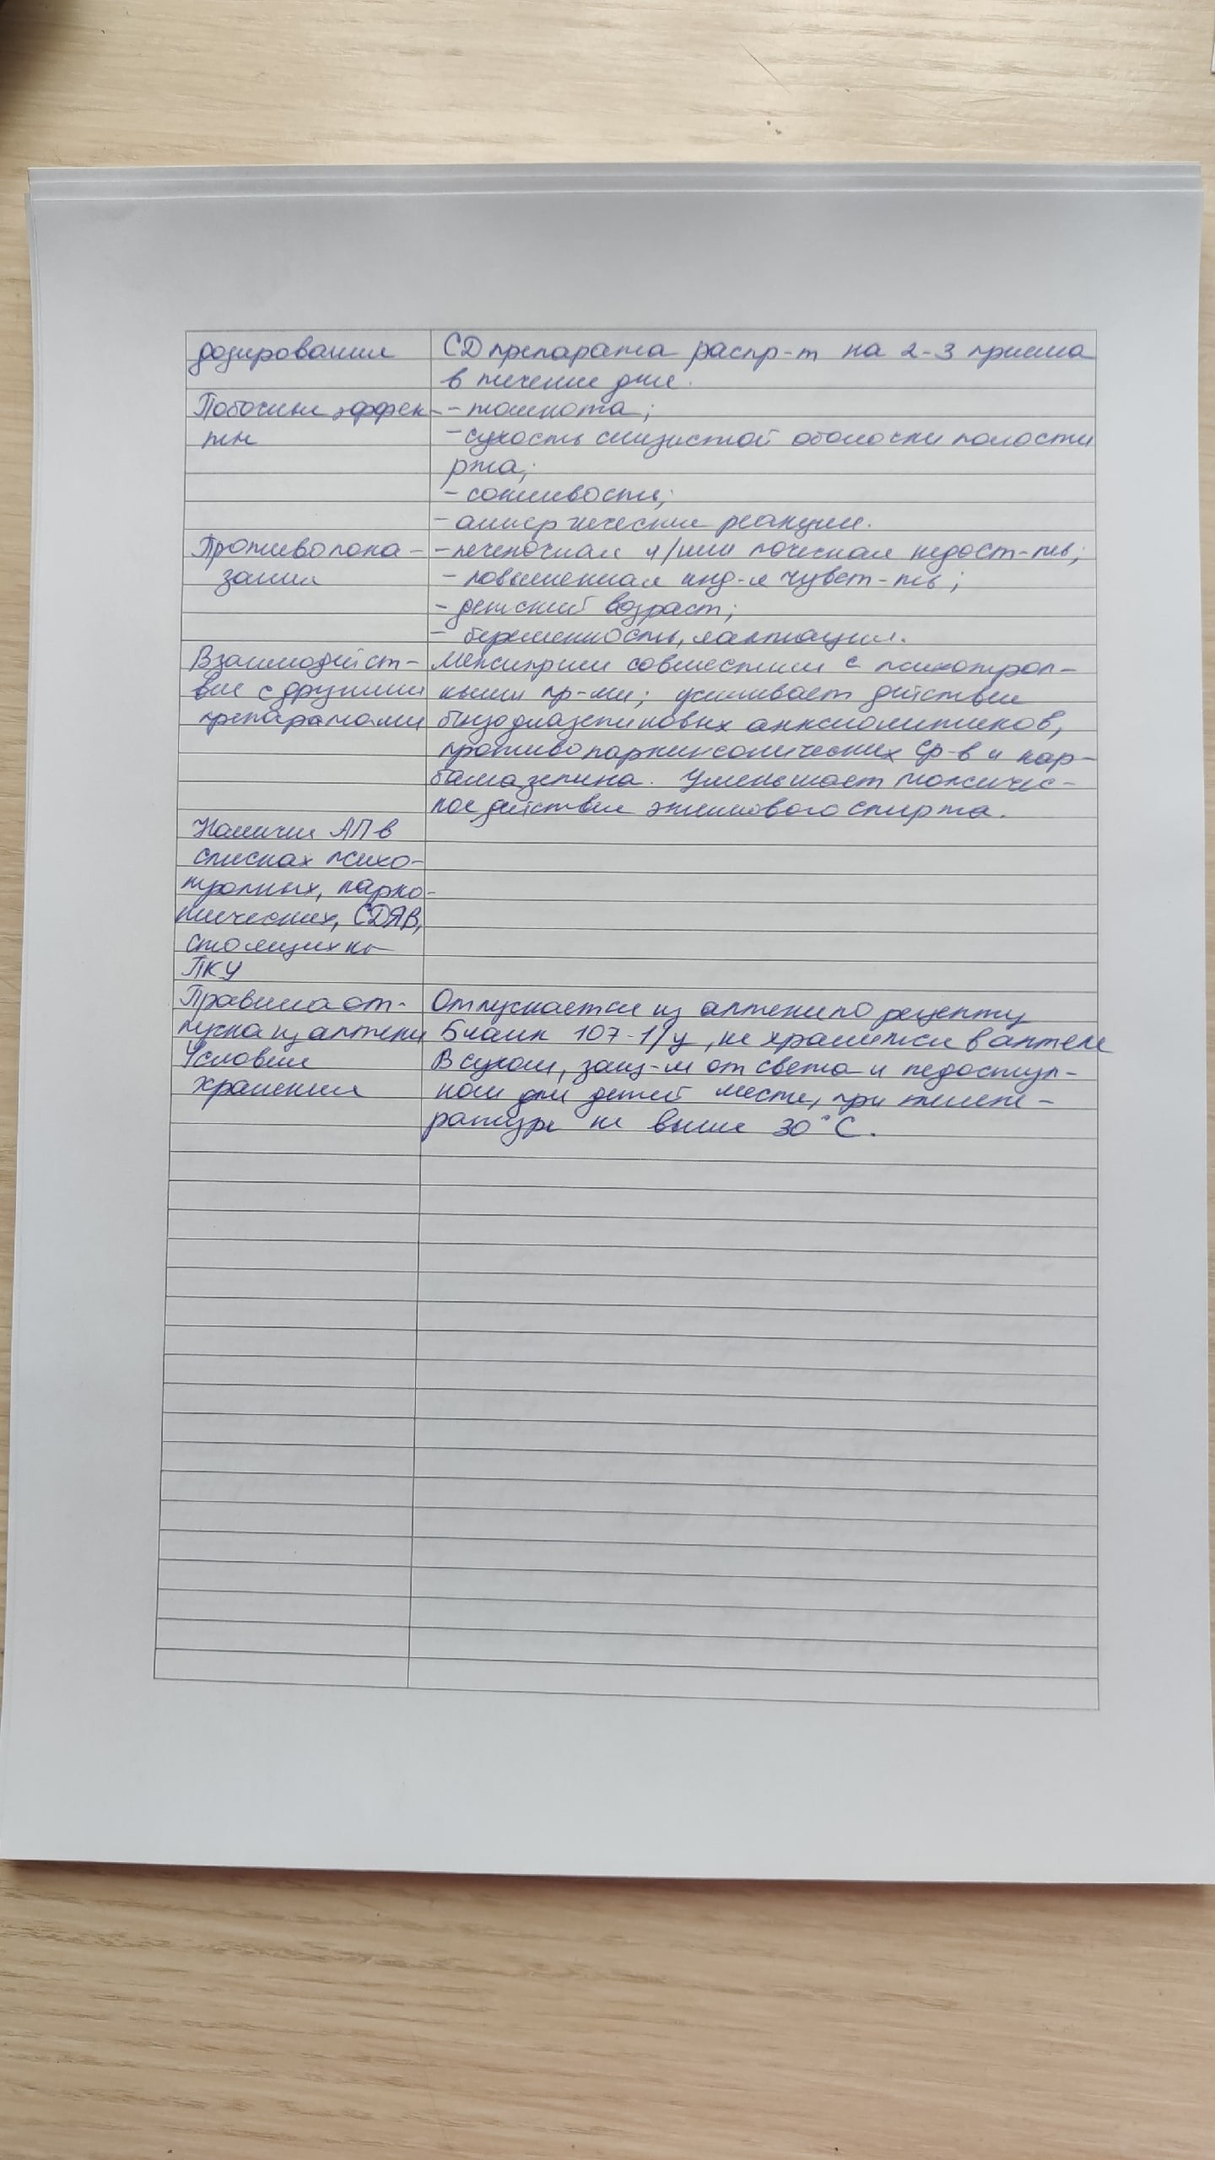 дозирования СД препарата распр-т на 2-3 приема
в течение дня.
Побочные эффек- - тошнота;
ты - сухость слизистой оболочки полости
рта;
- сонливость;
- аллергические реакции.
Противопока- - печеночная и/или почечная недост-ть;
зания - повышенная инд-я чувст-ть;
- детский возраст;
- беременность, лактация.
Взаимодейст- Мексиприм совместим с психотроп-
вие с другими ными пр-ми; усиливает действие
препаратами бензодиазепиновых анксиолитиков,
противопаркинсонических ср-в и кар-
бамазепина. Уменьшает токсичес-
кое действие этилового спирта.
Наличие ЛП в
списках психо-
тропных, нарко-
тических, СДЯВ,
стоящих на
ПКУ
Правила от- Отпускается из аптеки по рецепту
пуска из аптеки Бланк 107-1/у, не хранится в аптеке
Условия В сухом, защ-м от света и недоступ-
хранения ном для детей месте, при темпе-
ратуре не выше 30°С.